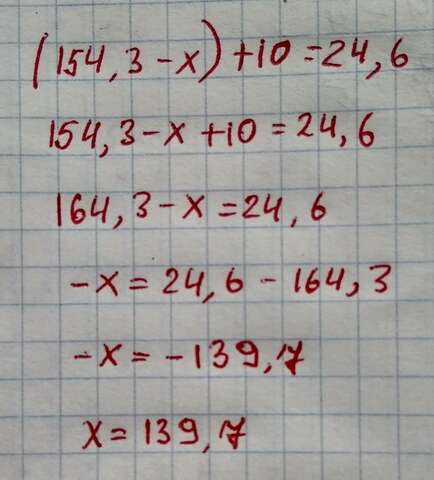 (154,3-x)+10=24,6
154,3-x+10=24,6
164,3-x=24,6
-x=24,6-164,3
-x=-139,7
x=139,7